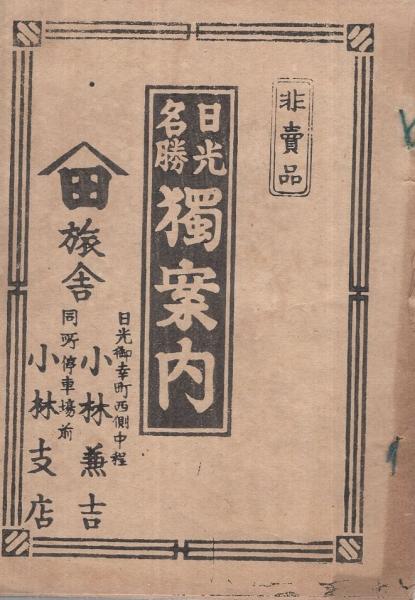 非賣品
日光
名勝
獨案内
田
旅舎
日光御幸町西側中程
小林兼吉
同所停車場前
小林支店